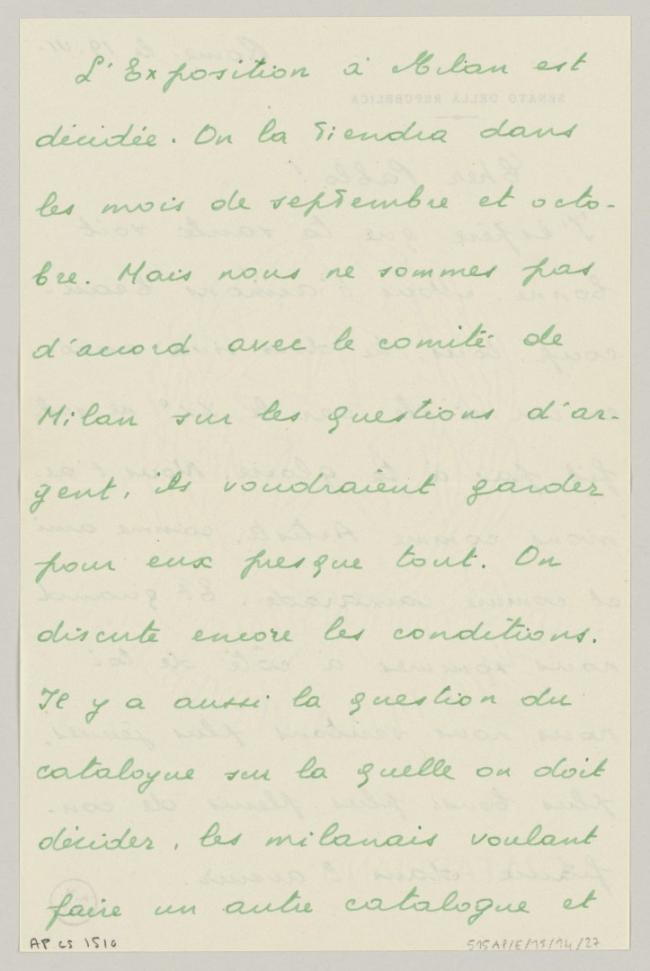 L'Exposition à Milan est
décidée. On la tiendra dans
les mois de septembre et octo-
bre. Mais nous ne sommes pas
d'accord avec le comité de
Milan sur les questions d'ar-
gent, ils voudraient garder
pour eux presque tout. On
discute encore les conditions.
Il y a aussi la question du
catalogue sur la quelle on doit
décider, les milanais voulant
faire un autre catalogue et
AP CS 1510
515AP/E/15/14/27